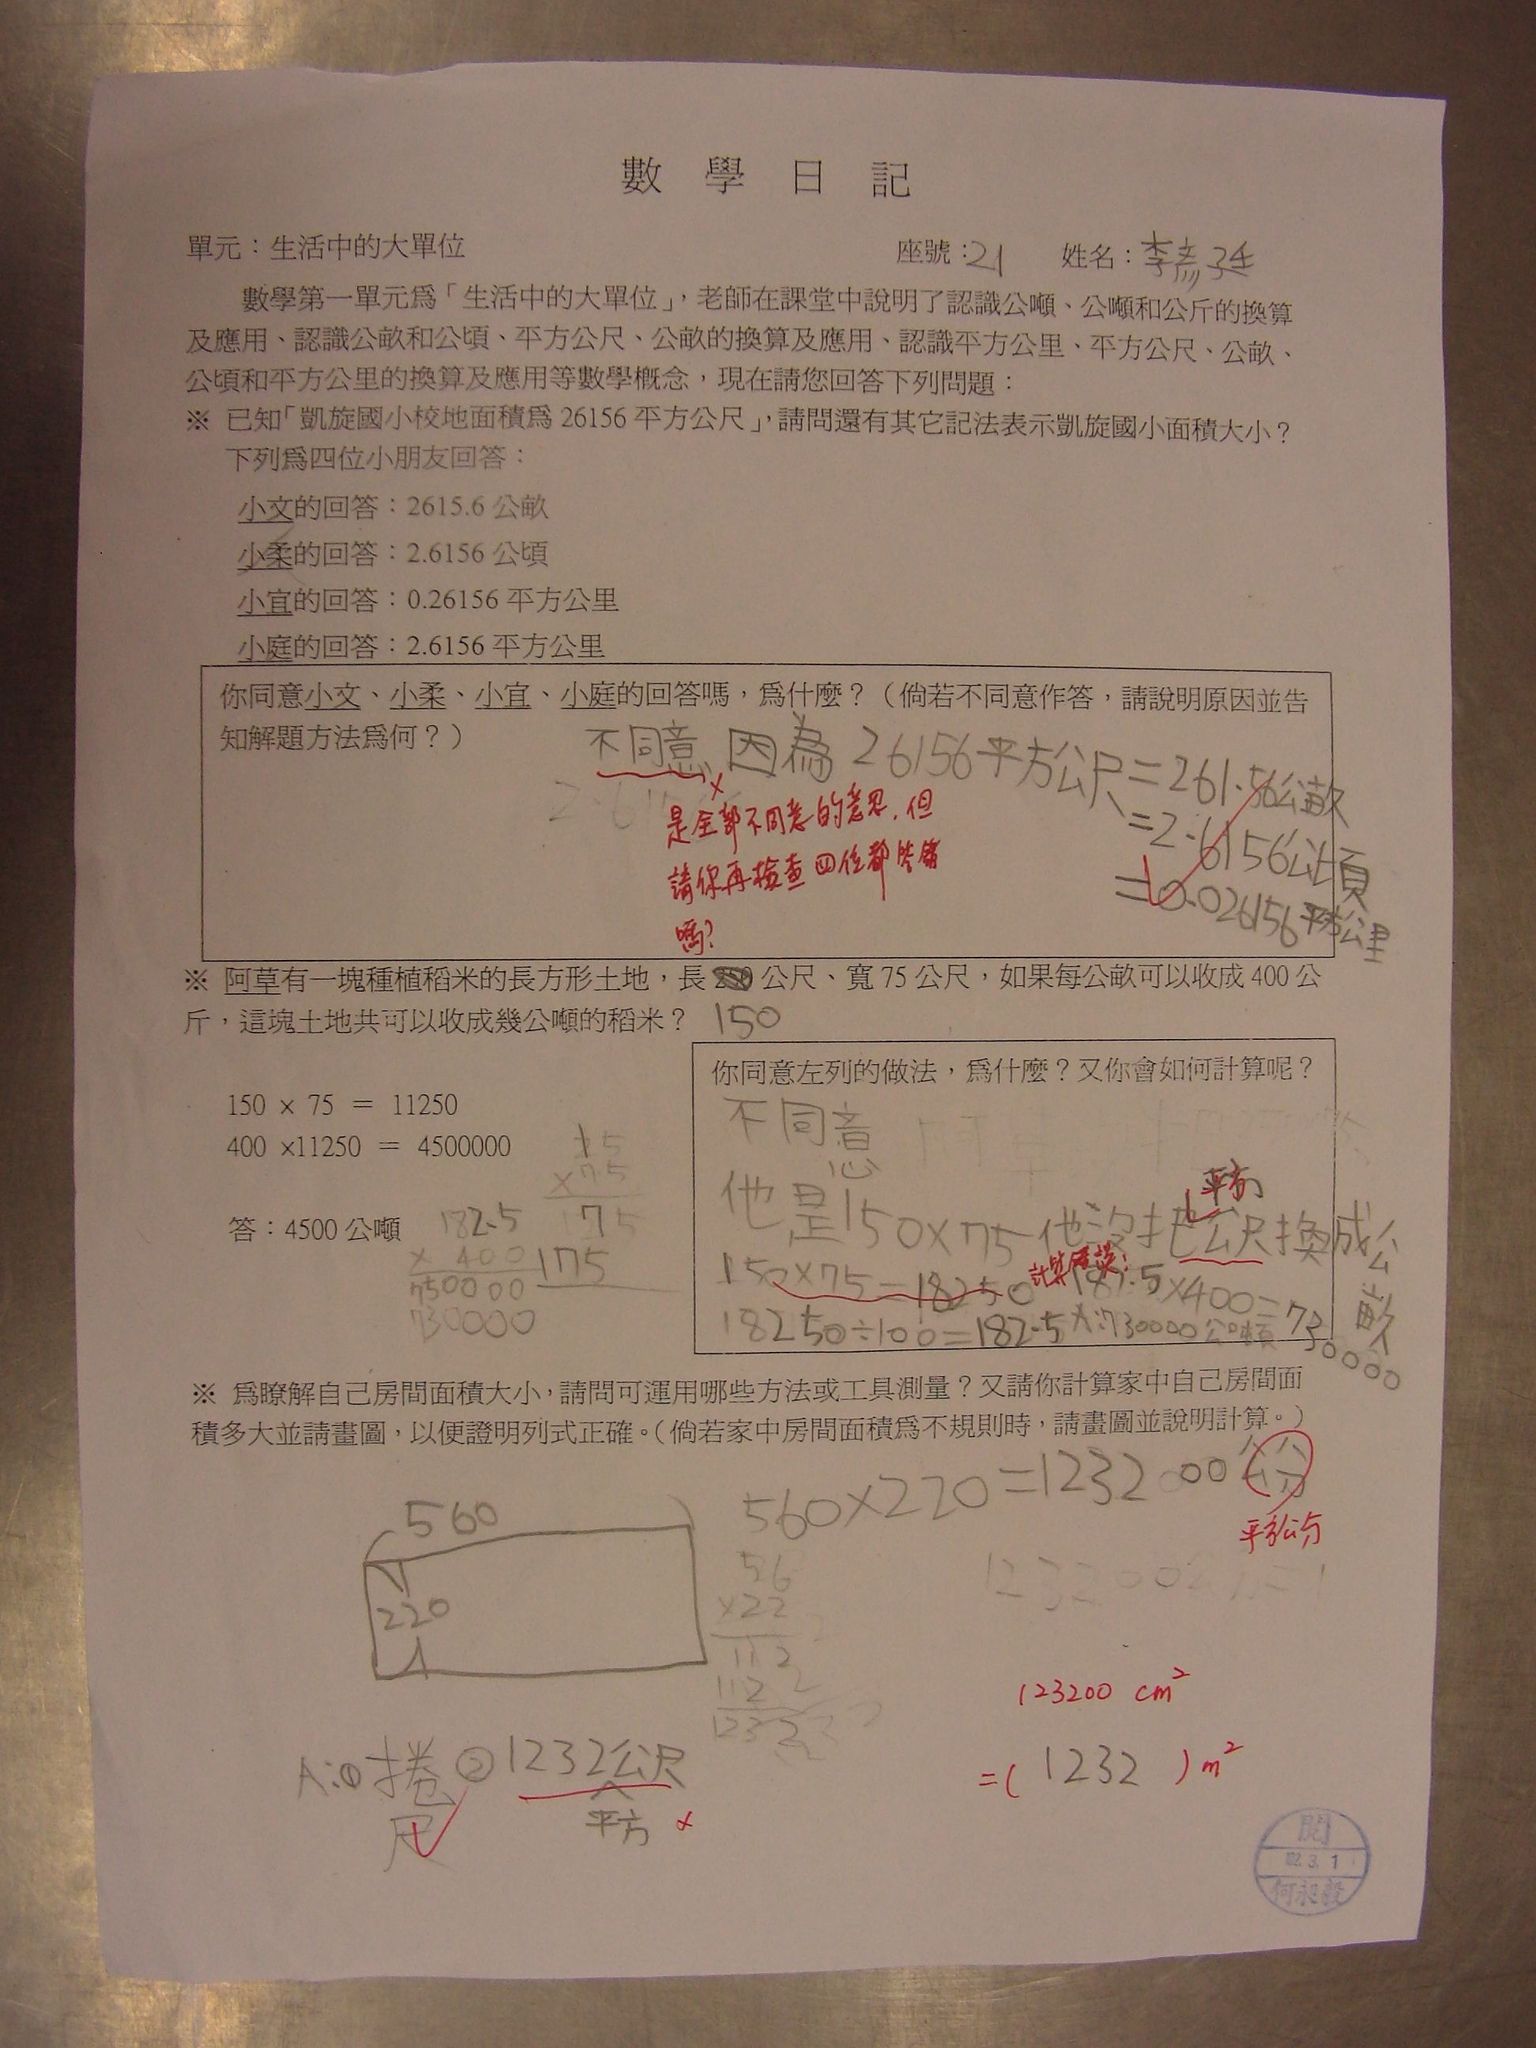 數 學 日 記
單元：生活中的大單位 座號：21 姓名：李彥廷
數學第一單元為「生活中的大單位」，老師在課堂中說明了認識公噸、公噸和公斤的換算
及應用、認識公畝和公頃、平方公尺、公畝的換算及應用、認識平方公里、平方公尺、公畝、
公頃和平方公里的換算及應用等數學概念，現在請您回答下列問題：
※ 已知「凱旋國小校地面積為 26156 平方公尺」，請問還有其它記法表示凱旋國小面積大小？
下列為四位小朋友回答：
小文的回答：2615.6 公畝
小柔的回答：2.6156 公頃
小宜的回答：0.26156 平方公里
小庭的回答：2.6156 平方公里
你同意小文、小柔、小宜、小庭的回答嗎，為什麼？（倘若不同意作答，請說明原因並告
知解題方法為何？）
不同意 因為 26156平方公尺=261.56公畝
=2.6156公頃
=0.026156平方公里
是全部不同意的意思，但
請你再檢查四位都答錯
嗎？
※ 阿草有一塊種植稻米的長方形土地，長 公尺、寬 75 公尺，如果每公畝可以收成 400 公
斤，這塊土地共可以收成幾公噸的稻米？ 150
150 × 75 = 11250
400 ×11250 = 4500000
答：4500 公噸
15
×75
175
182.5
× 400
750000
730000
你同意左列的做法，為什麼？又你會如何計算呢？
不同意
平方
他是150×75 他沒把公尺換成公畝
計算錯誤！
150×75=18250 182.5×400=730000
18250÷100=182.5 A:730000公噸
※ 為瞭解自己房間面積大小，請問可運用哪些方法或工具測量？又請你計算家中自己房間面
積多大並請畫圖，以便證明列式正確。（倘若家中房間面積為不規則時，請畫圖並說明計算。）
560×220=123200 公分
平方公分
560
220
56
×22
112
112
1232
123200 cm²
=( 1232 ) m²
A:①捲尺 ②1232公尺
平方
閱
102. 3. 1
何昶毅